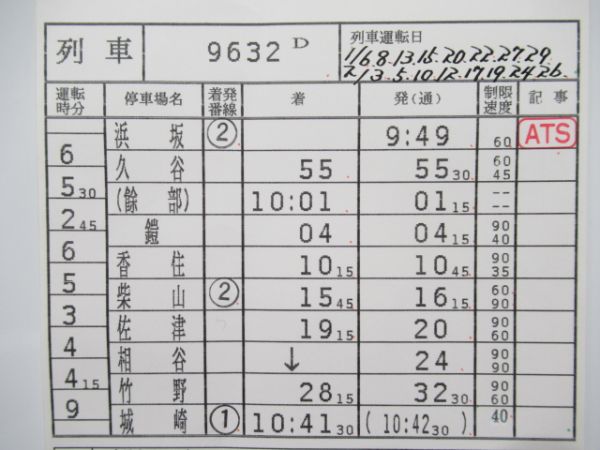 列車 9632D 列車運転日
1/6.8.13.15.20.22.27.29
2/3.5.10.12.17.19.24.26.
運転時分 停車場名 着発番線 着 発(通) 制限速度 記事
浜坂 ② 9:49 60 ATS
6
久谷 55 55 30 60 45
5 30
(餘部) 10:01 01 15 -- --
2 45
鎧 04 04 15 90 40
6
香住 10 15 10 45 90 35
5
柴山 ② 15 45 16 15 60 90
3
佐津 19 15 20 90 60
4
相谷 ↓ 24 90 90
4 15
竹野 28 15 32 30 90 60
9
城崎 ① 10:41 30 (10:42 30) 40